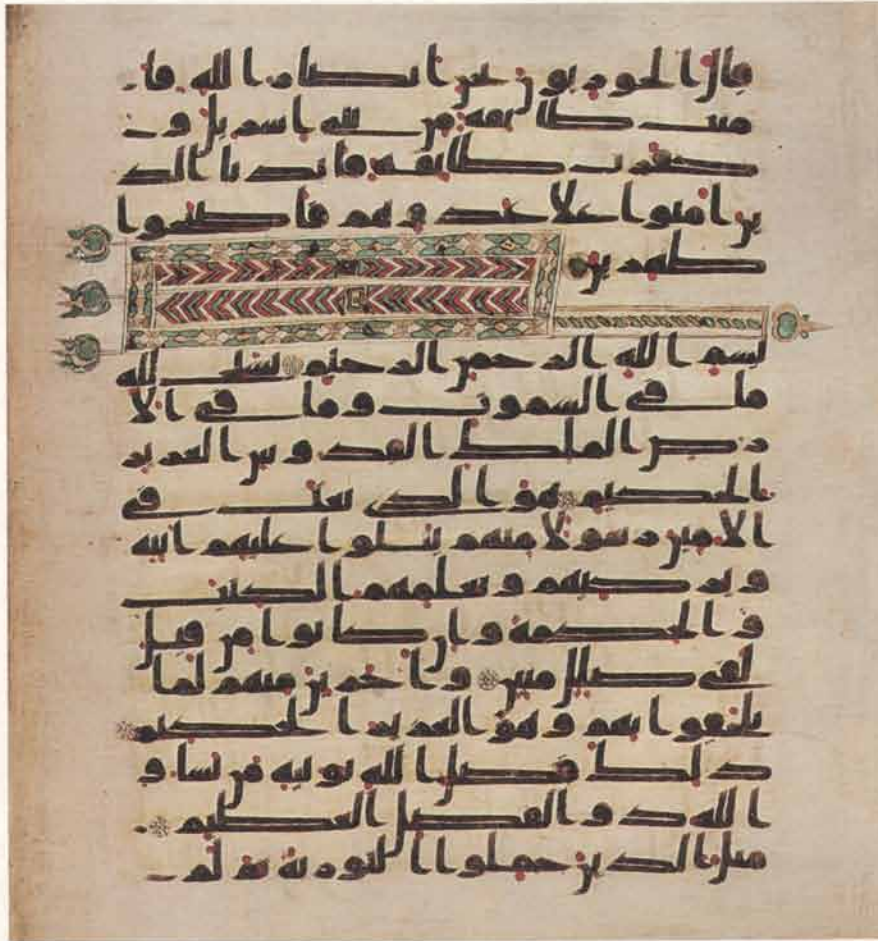 قال الحوريون نحن انصار الله فا
منت طايفة من بنى اسريل و
كفرت طايفة فايدنا الذ
ين امنوا علا عدوهم فاصبحوا
ظهرين
بسم الله الرحمن الرحيم يسبح لله
ما فى السموت وما فى الا
رض الملك القدوس العزيز
الحكيم هو الذى بعث فى
الامين رسولا منهم يتلوا عليهم ايته
ويزكيهم ويعلمهم الكتب
والحكمة وان كانوا من قبل
لفى ضلل مبين واخرين منهم لما
يلحقوا بهم وهو العزيز الحكيم
ذلك فضل الله يوتيه من يشا و
الله ذو الفضل العظيم
مثل الذين حملوا التورية ثم لم